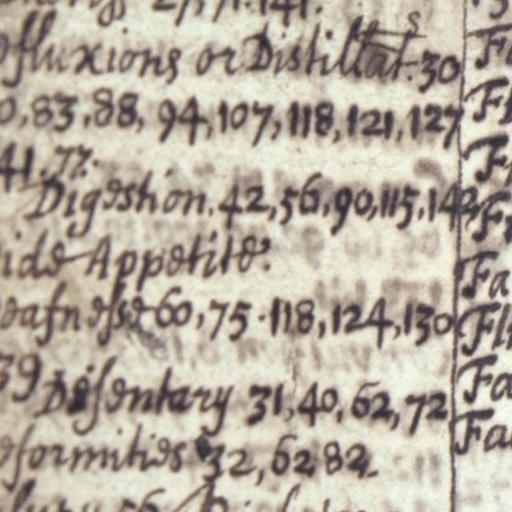 141.
fluxions or Distillats. 30
0, 83, 88, 94, 107, 118, 121, 127
41. 77.
Digestion. 42, 56, 90, 115, 142
vide Appetite.
Deafnesse 60, 75. 118, 124, 130
39 Disentary 31, 40, 62, 72
Deformities 32, 62 82.
56
Fa
Fl
Fa
Fa